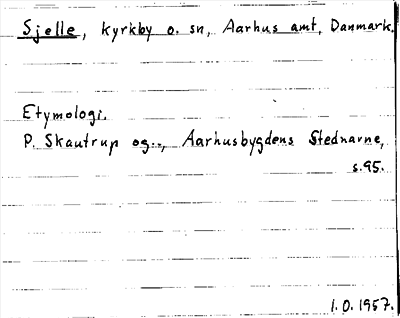 Sjelle, kyrkby o. sn, Aarhus amt, Danmark.
Etymologi.
P. Skautrup og.., Aarhusbygdens Stednavne,
s.95.
1.0.1957.